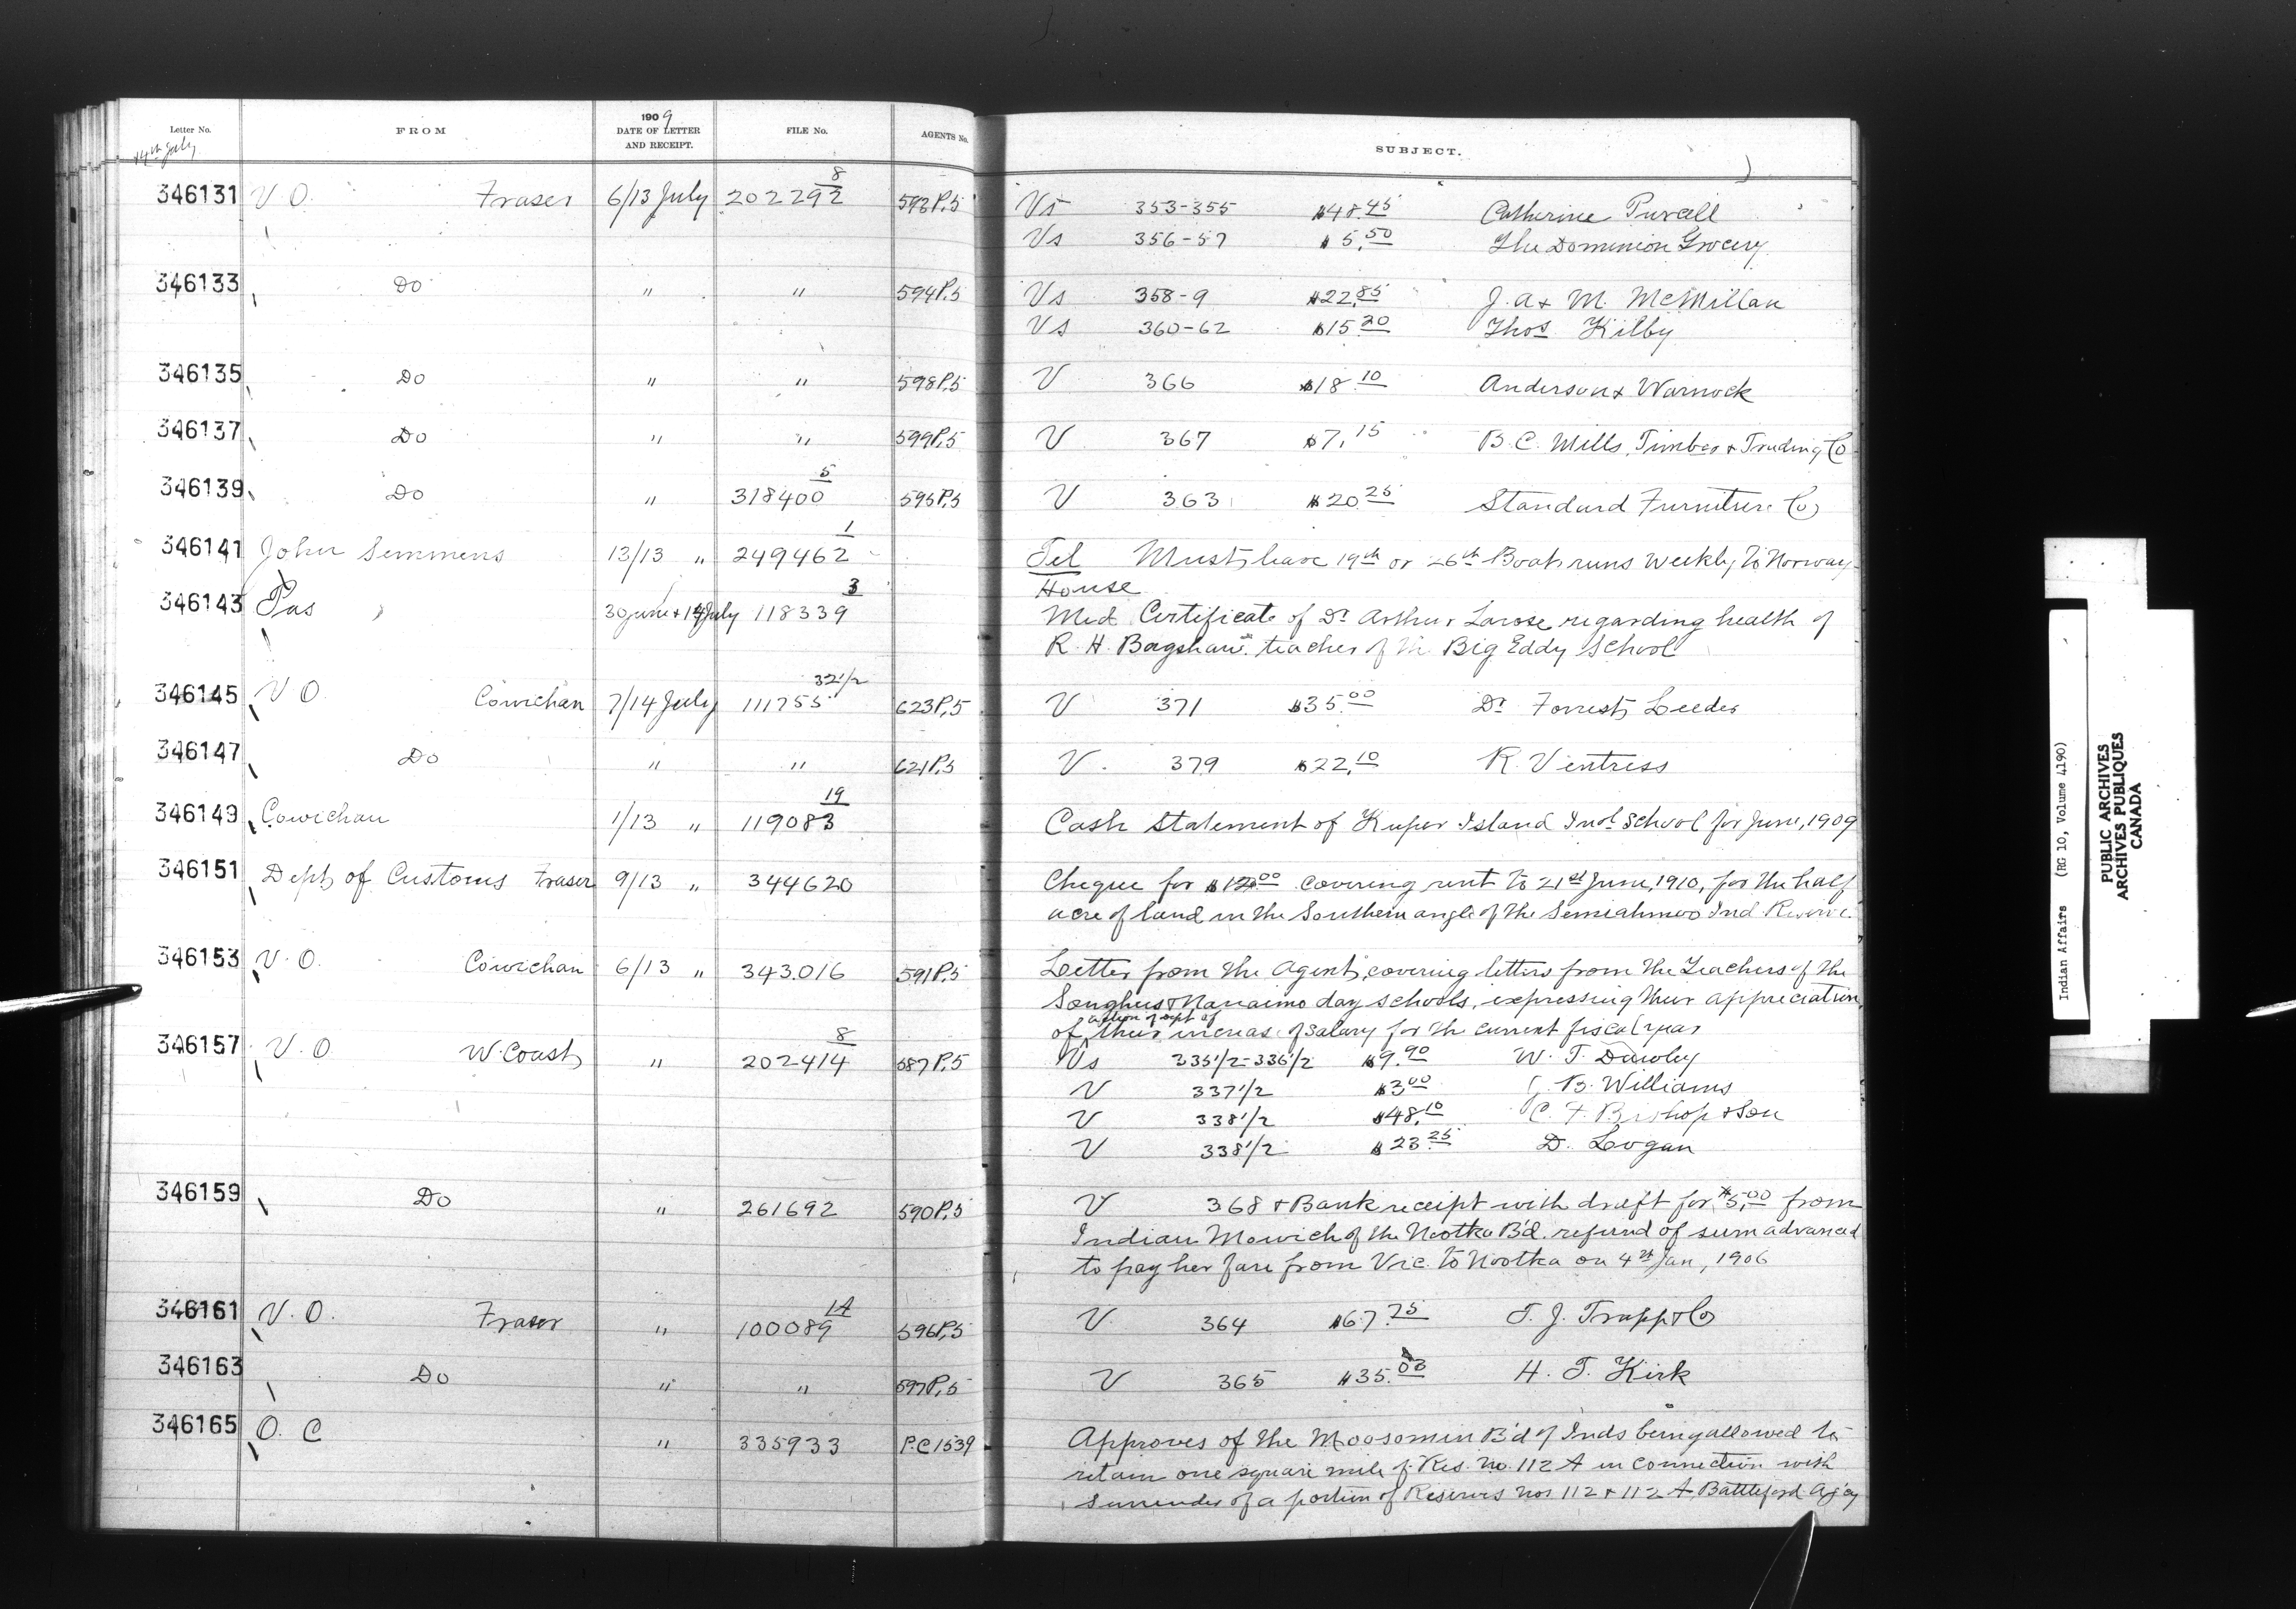 Letter No. FROM 1909 DATE OF LETTER AND RECEIPT. FILE No. AGENTS No. SUBJECT.
14th July
346131 V. O. Fraser 6/13 July 202292 8 593P,5 Vs 353-355 $48.45 Catherine Purcell
Vs 356-57 $5.50 The Dominion Grocery
346133 Do " " 594P,5 Vs 358-9 $22.85 J. A + M. McMillan
Vs 360-62 $15.20 Thos Kilby
346135 Do " " 598P,5 V 366 $18.10 Anderson + Warnock
346137 Do " " 599P,5 V 367 $7,15 B. C. Mills, Timber + Trading Co
346139 Do " 318400 5 595P,5 V 363 $20.25 Standard Furniture Co
346141 John Semmens 13/13 " 249462 1 Tel Must leave 19th or 26th Boat runs weekly to Norway
House
346143 Pas 30 June + 14 July 118339 3 Med Certificate of Dr Arthur Larose regarding health of
R. H. Bagshaw teacher of the Big Eddy School
346145 V O. Cowichan 7/14 July 111755 32 1/2 623P,5 V 371 $35.00 Dr Forrest Leeder
346147 Do " " 621P,5 V. 379 $22.10 R. Ventress
346149 Cowichan 1/13 " 119083 19 Cash Statement of Kuper Island Indl School for June, 1909
346151 Dept of Customs Fraser 9/13 " 344620 Cheque for $12.00 covering rent to 21st June, 1910, for the half
acre of land in the Southern angle of the Semiahmoo Ind Reserve.
346153 V. O. Cowichan 6/13 " 343.016 591P,5 Letter from the Agent, covering letters from the Teachers of the
Songhees + Nanaimo day schools, expressing their appreciation
action of dept of
of their increase of salary for the current fiscal year
346157 V. O W. Coast " 202414 8 587P,5 Vs 335 1/2-336 1/2 $9.90 W. T. Dawley
V 337 1/2 $3.00 B. Williams
V 338 1/2 $48.10 C. F. Bishop + Son
V 338 1/2 $23.25 D. Logan
346159 Do " 261692 590P,5 V 368 + Bank receipt with draft for $5.00 from
Indian Mowich of the Nootka Bd. refund of sum advanced
to pay her fare from Vic. to Nootka on 4th Jan, 1906
346161 V. O. Fraser " 100089 14 596P,5 V. 364 $67.75 T. J. Trapp + Co
346163 Do " " 597P,5 V 365 $35.00 H. T. Kirk
346165 O. C " 335933 P.C 1539 Approves of the Moosomin Bd of Inds being allowed to
retain one square mile of Res. No. 112 A in connection with
surrender of a portion of Reserves nos 112 + 112 A Battleford Agcy
Indian Affairs (RG 10, Volume 4190)
PUBLIC ARCHIVES
ARCHIVES PUBLIQUES
CANADA